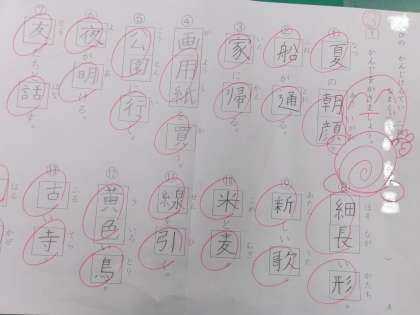 ①夏の朝顔
②船が通る。
③家に帰る。
④画用紙を買う。
⑤公園に行く。
夜が明ける。
⑦友だちと話す。
細長い形
新しい歌
米と麦
線を引く
黄色い鳥
古い寺